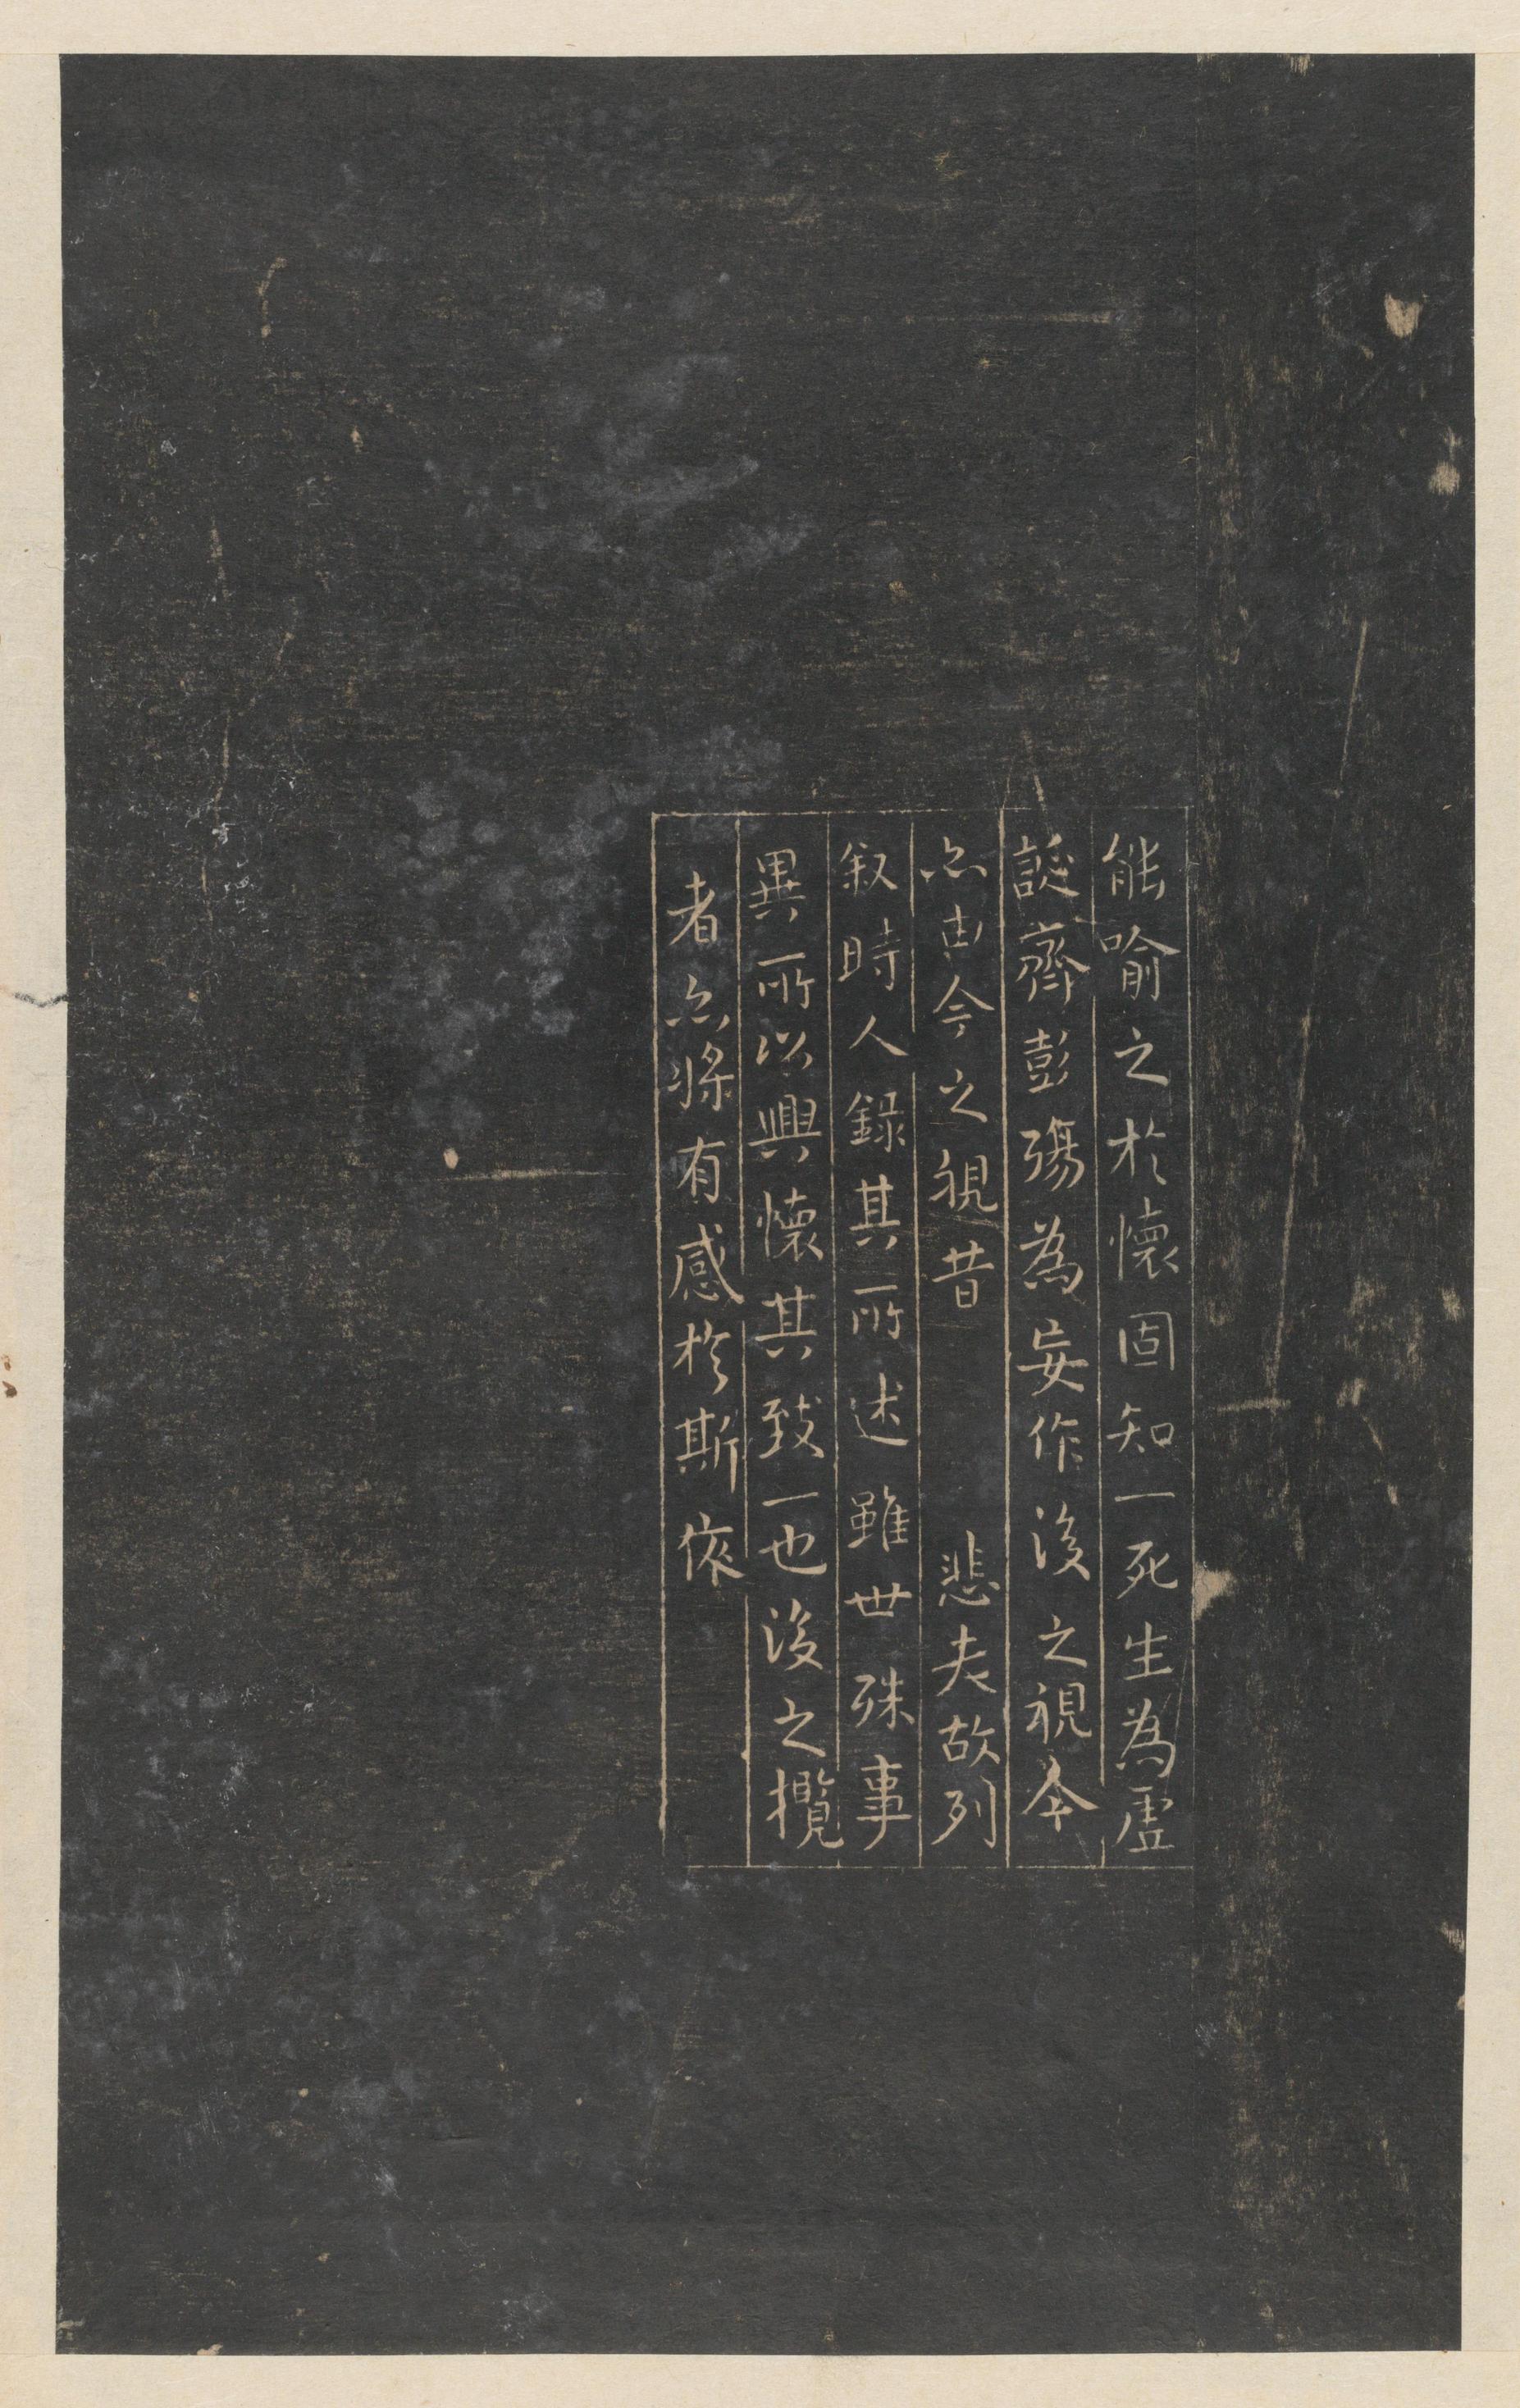 能喻之於懷固知一死生為虛
誕齊彭殤為妄作後之視今
亦由今之視昔 悲夫故列
叙時人錄其所述雖世殊事
異所以興懷其致一也後之攬
者亦將有感於斯